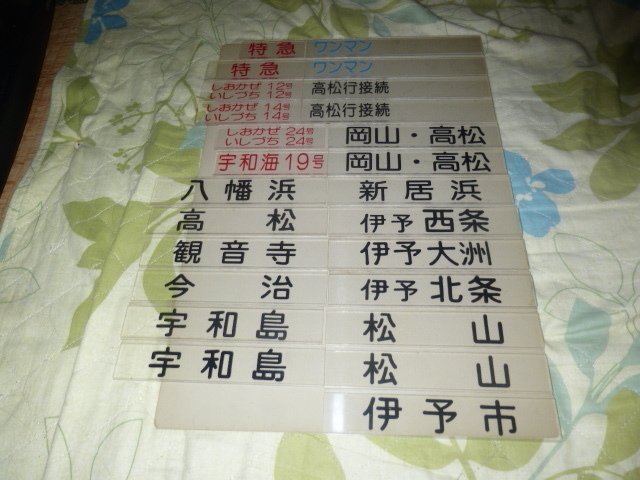 特急 ワンマン
特急 ワンマン
しおかぜ 12号 高松行接続
いしづち 12号
しおかぜ 14号 高松行接続
いしづち 14号
しおかぜ 24号 岡山・高松
いしづち 24号
宇和海 19号 岡山・高松
八幡浜 新居浜
高松 伊予西条
観音寺 伊予大洲
今治 伊予北条
宇和島 松山
宇和島 松山
伊予市